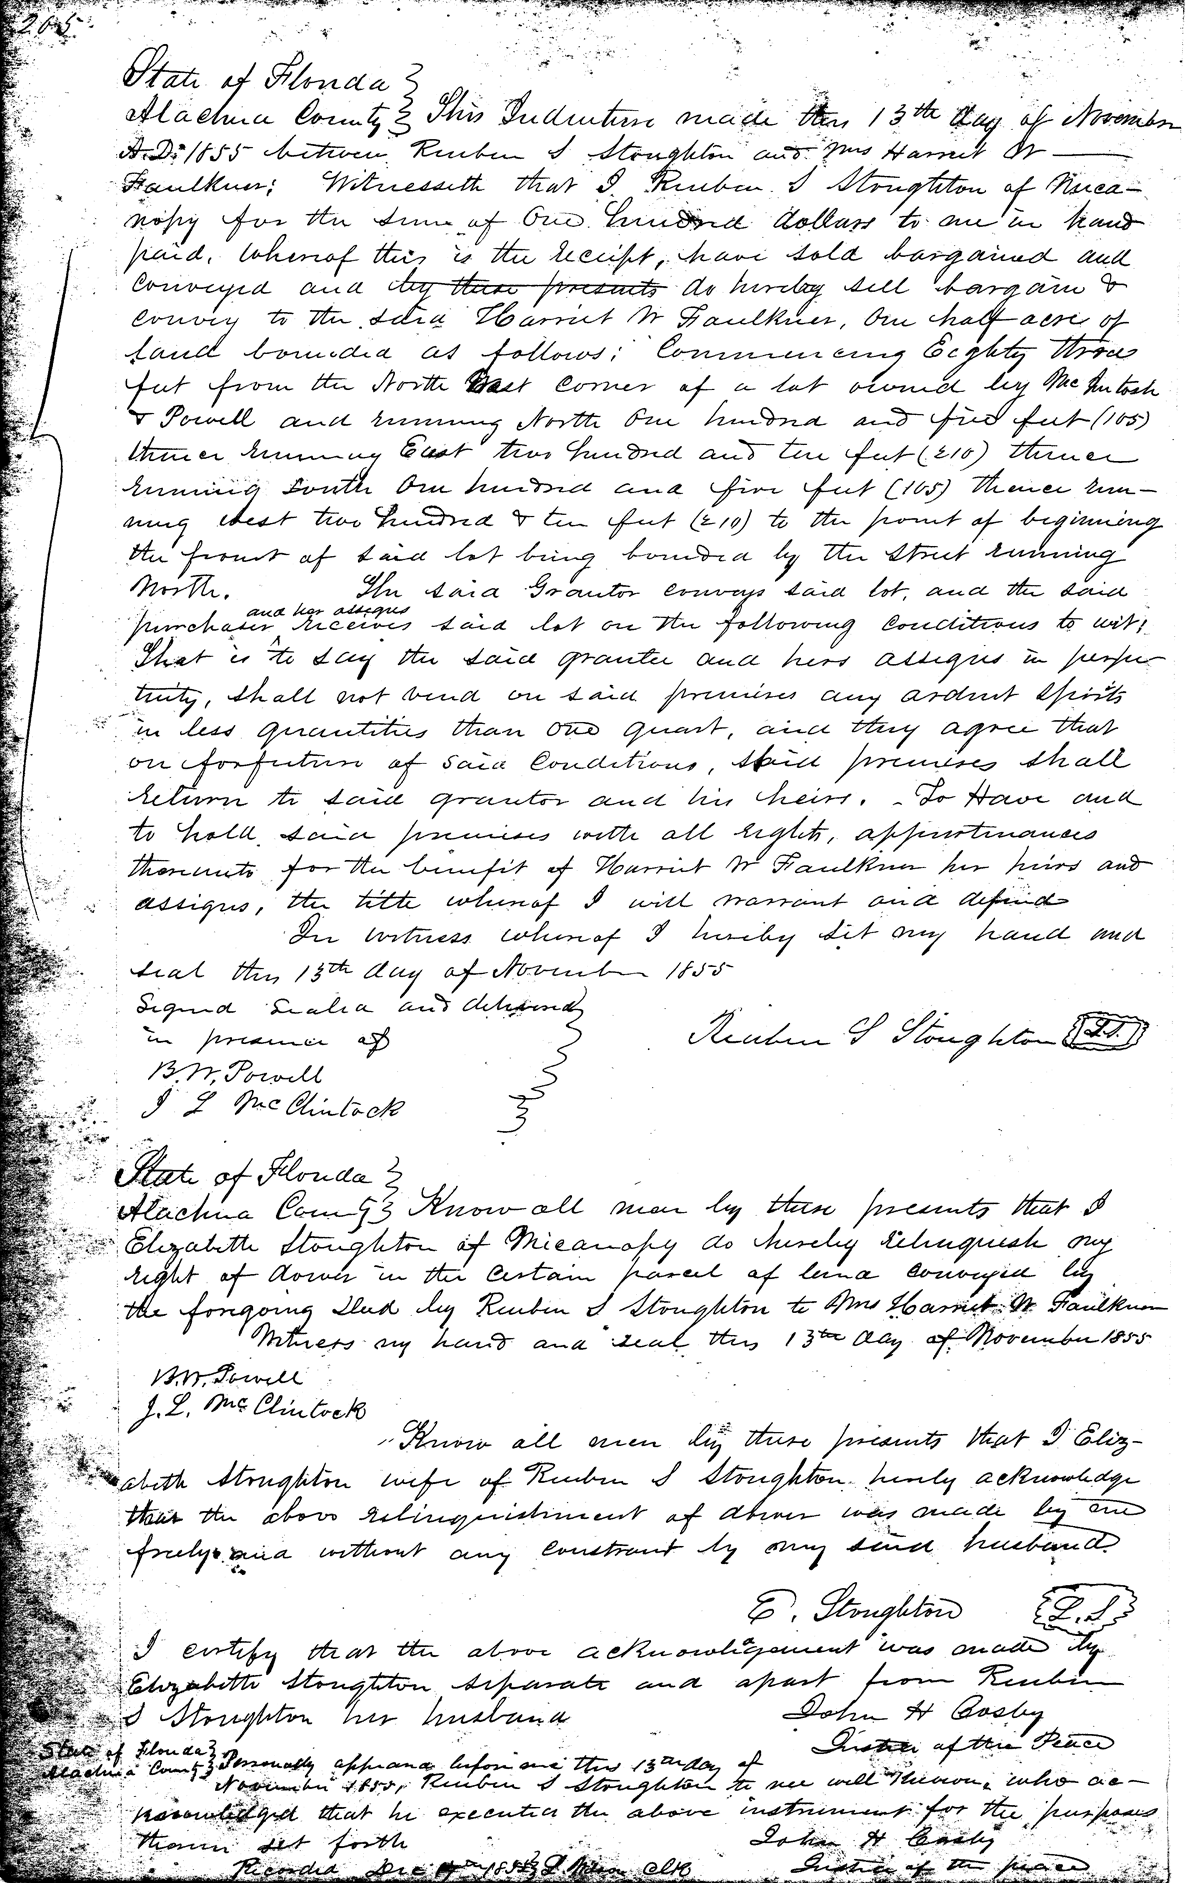 265
State of Florida }
Alachua County } This Indenture made this 13th day of November
A.D. 1855 between Reuben S Stoughton and Mrs Harriet W
Faulkner; Witnesseth that I, Reuben S Stoughton of Mica-
nopy for the sum of One hundred dollars to me in hand
paid, whereof this is the receipt, have sold bargained and
conveyed and by these presents do hereby sell bargain &
convey to the said Harriet W Faulkner, One half acre of
land bounded as follows; Commencing Eighty three
feet from the North East corner of a lot owned by McIntosh
& Powell and running North One hundred and five feet (105)
thence running East two hundred and ten feet (210) thence
running South One hundred and five feet (105) thence run-
ning west two hundred & ten feet (210) to the point of beginning
the front of said lot being bounded by the street running
North. The said Grantor conveys said lot, and the said
purchaser and her assigns receives said lot on the following conditions to wit;
That is to say the said grantee and hers assigns in perpe-
tuity, shall not vend on said premises any ardent spirits
in less quantities than one quart, and they agree that
on forfeiture of said Conditions, said premises shall
return to said grantor and his heirs. To Have and
to hold said premises with all rights, appurtinances
thereunto for the benefit of Harriet W Faulkner her heirs and
assigns, the title whereof I will warrant and defend
In witness whereof I hereby set my hand and
seal this 13th day of November 1855
Signed Sealed and delivered
in presence of
Reuben S Stoughton L.S.
B.W. Powell
J L McClintock
State of Florida }
Alachua County } Know all men by these presents that I
Elizabeth Stoughton of Micanopy do hereby relinquish my
right of dower in the certain parcel of land conveyed by
the foregoing Deed by Reuben S Stoughton to Mrs Harriet W Faulkner
Witness my hand and seal this 13th day of November 1855
B.W. Powell
J. L. McClintock
Know all men by these presents that I Eliz-
abeth Stoughton wife of Reuben S Stoughton hereby acknowledge
that the above relinquishment of dower was made by me
freely and without any constraint by my said husband
E. Stoughton L.S
I certify that the above acknowledgement was made by
Elizabeth Stoughton separate and apart from Reuben
S Stoughton her husband John H Cosby
Justice of the Peace
State of Florida }
Alachua County } Personally appeared before me this 13th day of
November 1855, Reuben S Stoughton to me well known, who ac-
knowledged that he executed the above instrument for the purposes
therein set forth John H Cosby
Recorded Dec 1855 Clk Justice of the peace